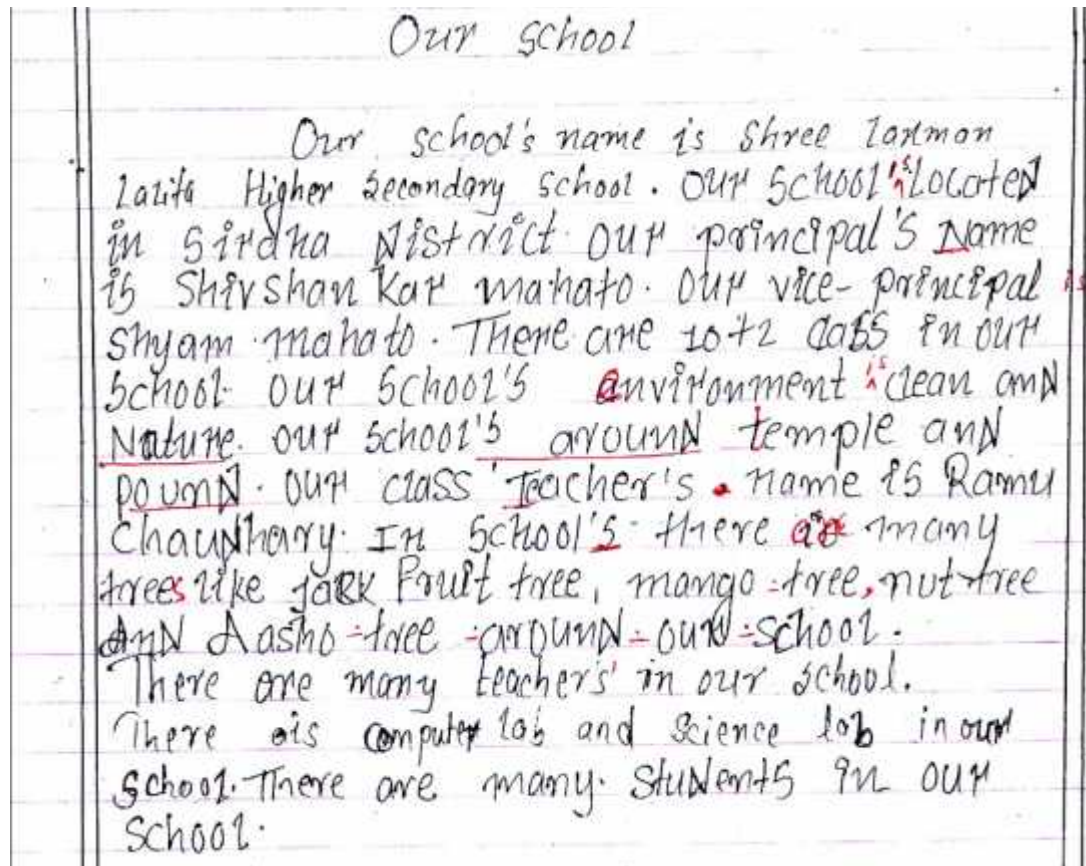 Our school
Our school's name is Shree Laxman
Lalita Higher Secondary School. Our School is Located
in Sirdha District. Our principal's Name
is Shivshankar mahato. Our vice-principal is
Shyam mahato. There are 10+2 class in our
School. Our School's environment is clean and
Nature. Our School's around temple and
pound. Our class Teacher's name is Ramu
Chaudhary. In School's there are many
trees like jack Fruit tree, mango-tree, nut-tree
And Aasho-tree-around-our-school.
There are many teacher's in our school.
There is computer lab and science lab in our
school. There are many. Students in our
School.